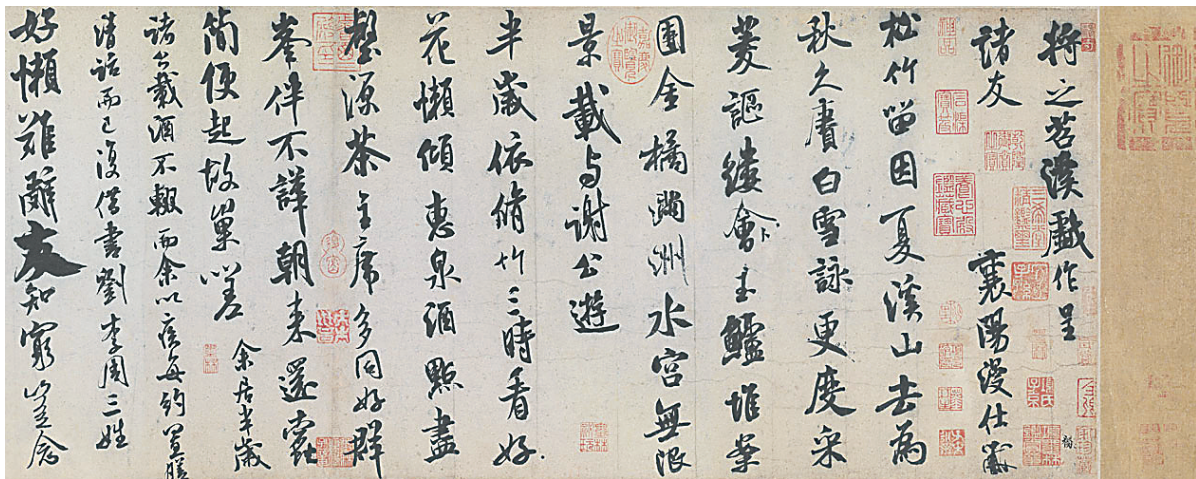 將之苕溪戲作呈
諸友
襄陽漫仕黻
松竹留因夏溪山去為
秋久賡白雪詠更度采
菱謳縷會玉鱸堆案
團金橘滿洲水宮無限
景載与謝公遊
半歲依脩竹三時看好
花懶傾惠泉酒點盡
壑源茶主席多同好群
峯伴不譁朝來還蠹
簡便起故巢以嗟
余居半歲
諸公載酒不輟而余以疾每約置膳
清話而已復借書劉李周三姓
好懶難辭友知窮豈念